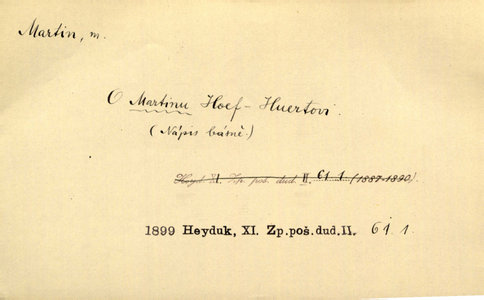 Martin, m.
O Martinu Hoef-Huertovi.
(Nápis básně.)
Heyd. XI. Zp. poš. dud. II. 61 1 (1887-1890).
1899 Heyduk, XI. Zp.poš.dud.II. 61. 1.